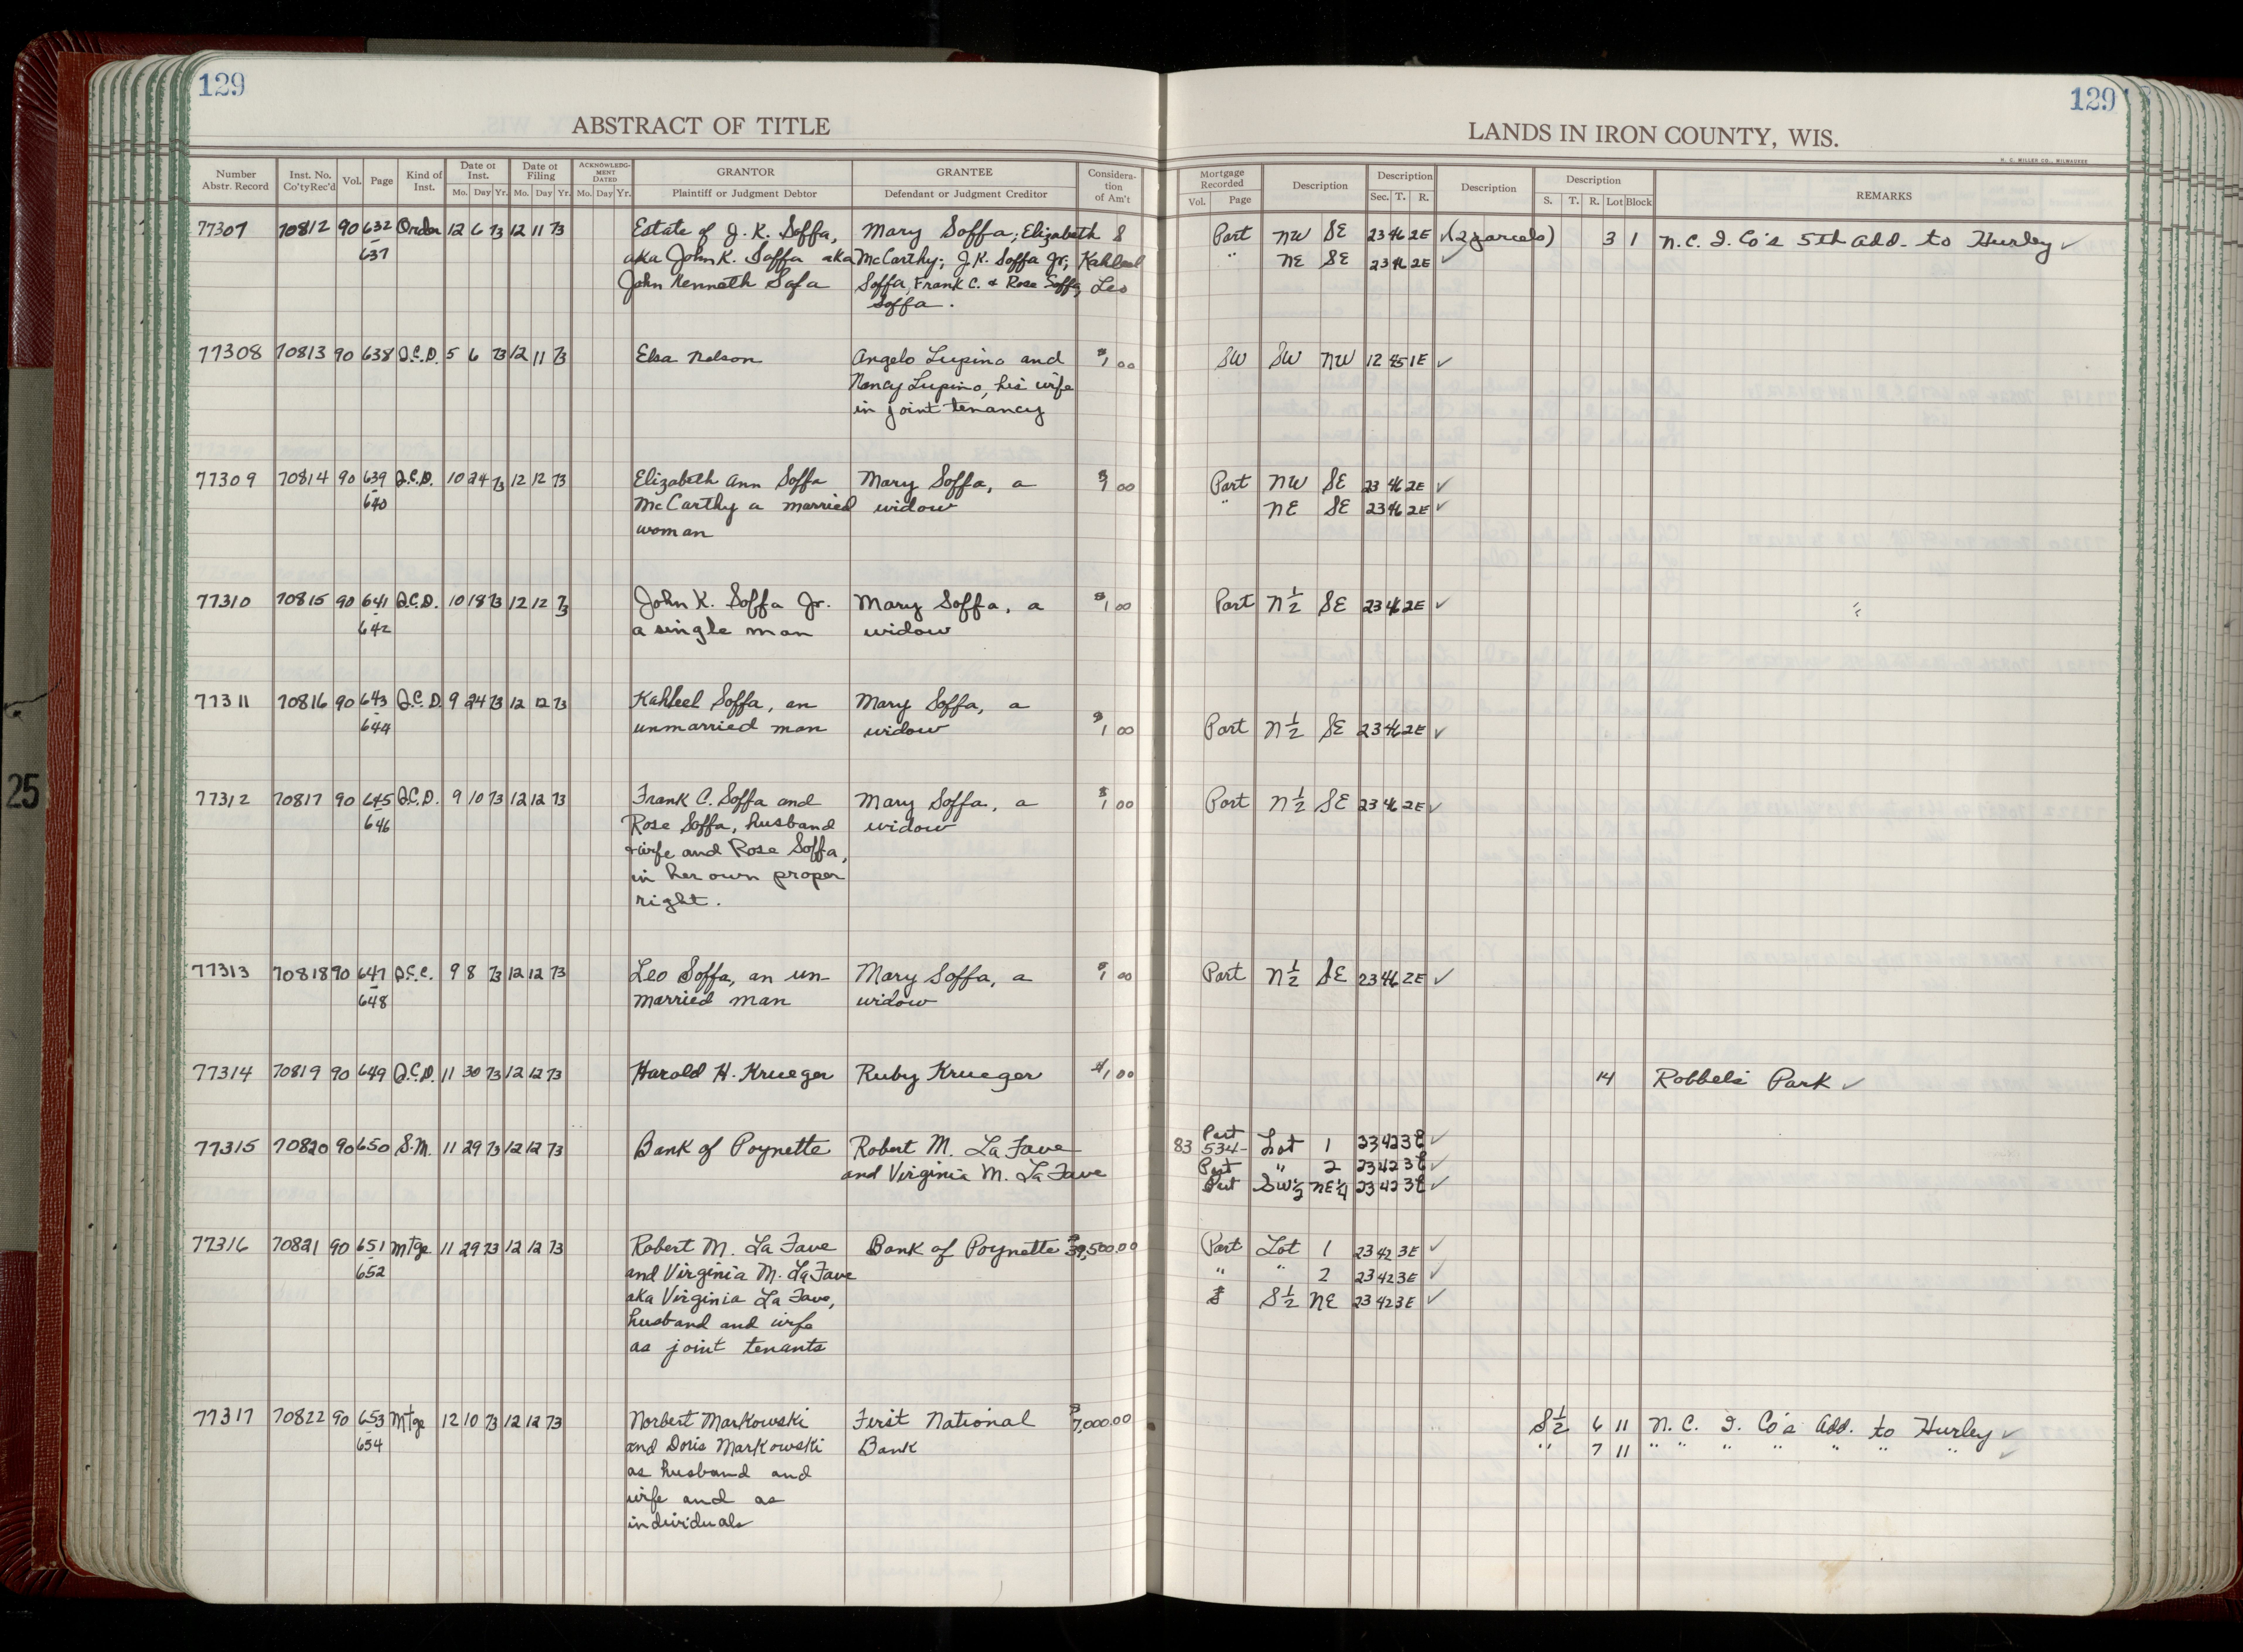 129
129
ABSTRACT OF TITLE
LANDS IN IRON COUNTY, WIS.
H. C. MILLER CO., MILWAUKEE
Number Abstr. Record | Inst. No. Co'ty Rec'd | Vol. | Page | Kind of Inst. | Date of Inst. Mo. Day Yr. | Date of Filing Mo. Day Yr. | ACKNOWLEDGMENT DATED Mo. Day Yr. | GRANTOR Plaintiff or Judgment Debtor | GRANTEE Defendant or Judgment Creditor | Consideration of Am't | Mortgage Recorded Vol. Page | Description | Description Sec. T. R. | Description | Description S. T. R. Lot Block | REMARKS
77307 70812 90 632 Order 12 6 73 12 11 73 Estate of J. K. Soffa, Mary Soffa; Elizabeth S Part NW SE 23 46 2E ✓ (2 parcels) 3 1 N.C. I. Co's 5th Add. to Hurley ✓
- 637 aka John K. Soffa aka McCarthy; J.K. Soffa Jr; Kahleel " NE SE 23 46 2E ✓
John Kenneth Safa Soffa, Frank C. + Rose Soffa, Leo
Soffa.
77308 70813 90 638 Q.C.D. 5 6 73 12 11 73 Elsa Nelson Angelo Lupino and $1 00 SW SW NW 12 45 1E ✓
Nancy Lupino, his wife
in joint tenancy
77309 70814 90 639 Q.C.D. 10 24 73 12 12 73 Elizabeth Ann Soffa Mary Soffa, a $1 00 Part NW SE 23 46 2E ✓
- 640 McCarthy a married widow " NE SE 23 46 2E ✓
woman
77310 70815 90 641 Q.C.D. 10 18 73 12 12 73 John K. Soffa Jr. Mary Soffa, a $1 00 Part N½ SE 23 46 2E ✓
- 642 a single man widow
77311 70816 90 643 Q.C.D. 9 24 73 12 12 73 Kahleel Soffa, an Mary Soffa, a
- 644 unmarried man widow $1 00 Part N½ SE 23 46 2E ✓
77312 70817 90 645 Q.C.D. 9 10 73 12 12 73 Frank C. Soffa and Mary Soffa, a $1 00 Part N½ SE 23 46 2E ✓
- 646 Rose Soffa, husband widow
+ wife and Rose Soffa,
in her own proper
right.
77313 70818 90 647 Q.C.C. 9 8 73 12 12 73 Leo Soffa, an un- Mary Soffa, a $1 00 Part N½ SE 23 46 2E ✓
- 648 married man widow
77314 70819 90 649 Q.C.D. 11 30 73 12 12 73 Harold H. Krueger Ruby Krueger $1 00 14 Robbels Park ✓
77315 70820 90 650 S.M. 11 29 73 12 12 73 Bank of Poynette Robert M. La Fave 83 534- Part Lot 1 23 42 3E ✓
and Virginia M. La Fave Part " 2 23 42 3E ✓
Part SW½ NE¼ 23 42 3E ✓
77316 70821 90 651 Mtge 11 29 73 12 12 73 Robert M. La Fave Bank of Poynette $39,500.00 Part Lot 1 23 42 3E ✓
- 652 and Virginia M. La Fave " " 2 23 42 3E ✓
aka Virginia La Fave, S½ NE 23 42 3E ✓
husband and wife
as joint tenants
77317 70822 90 653 Mtge 12 10 73 12 12 73 Norbert Markowski First National $7,000.00 S½ 6 11 N. C. I. Co's Add. to Hurley ✓
- 654 and Doris Markowski Bank " 7 11 " " " " " " " ✓
as husband and
wife and as
individuals
25